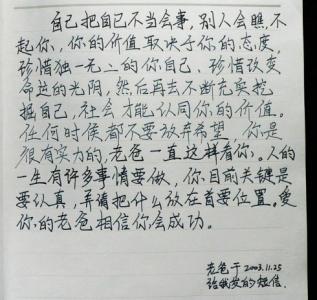 自己把自己不当会事，别人会瞧不
起你，你的价值取决于你的态度，
珍惜独一无二的你自己、珍惜改变
命运的光阴，然后再去不断充实挖
掘自己，社会才能认同你的价值。
任何时候都不要放弃希望，你是
很有实力的，老爸一直这样看你。人的
一生有许多事情要做，你目前关键是
要认真，弄清把什么放在首要位置。爱
你的老爸相信你会成功。
老爸于2003.11.25
给我发的短信.